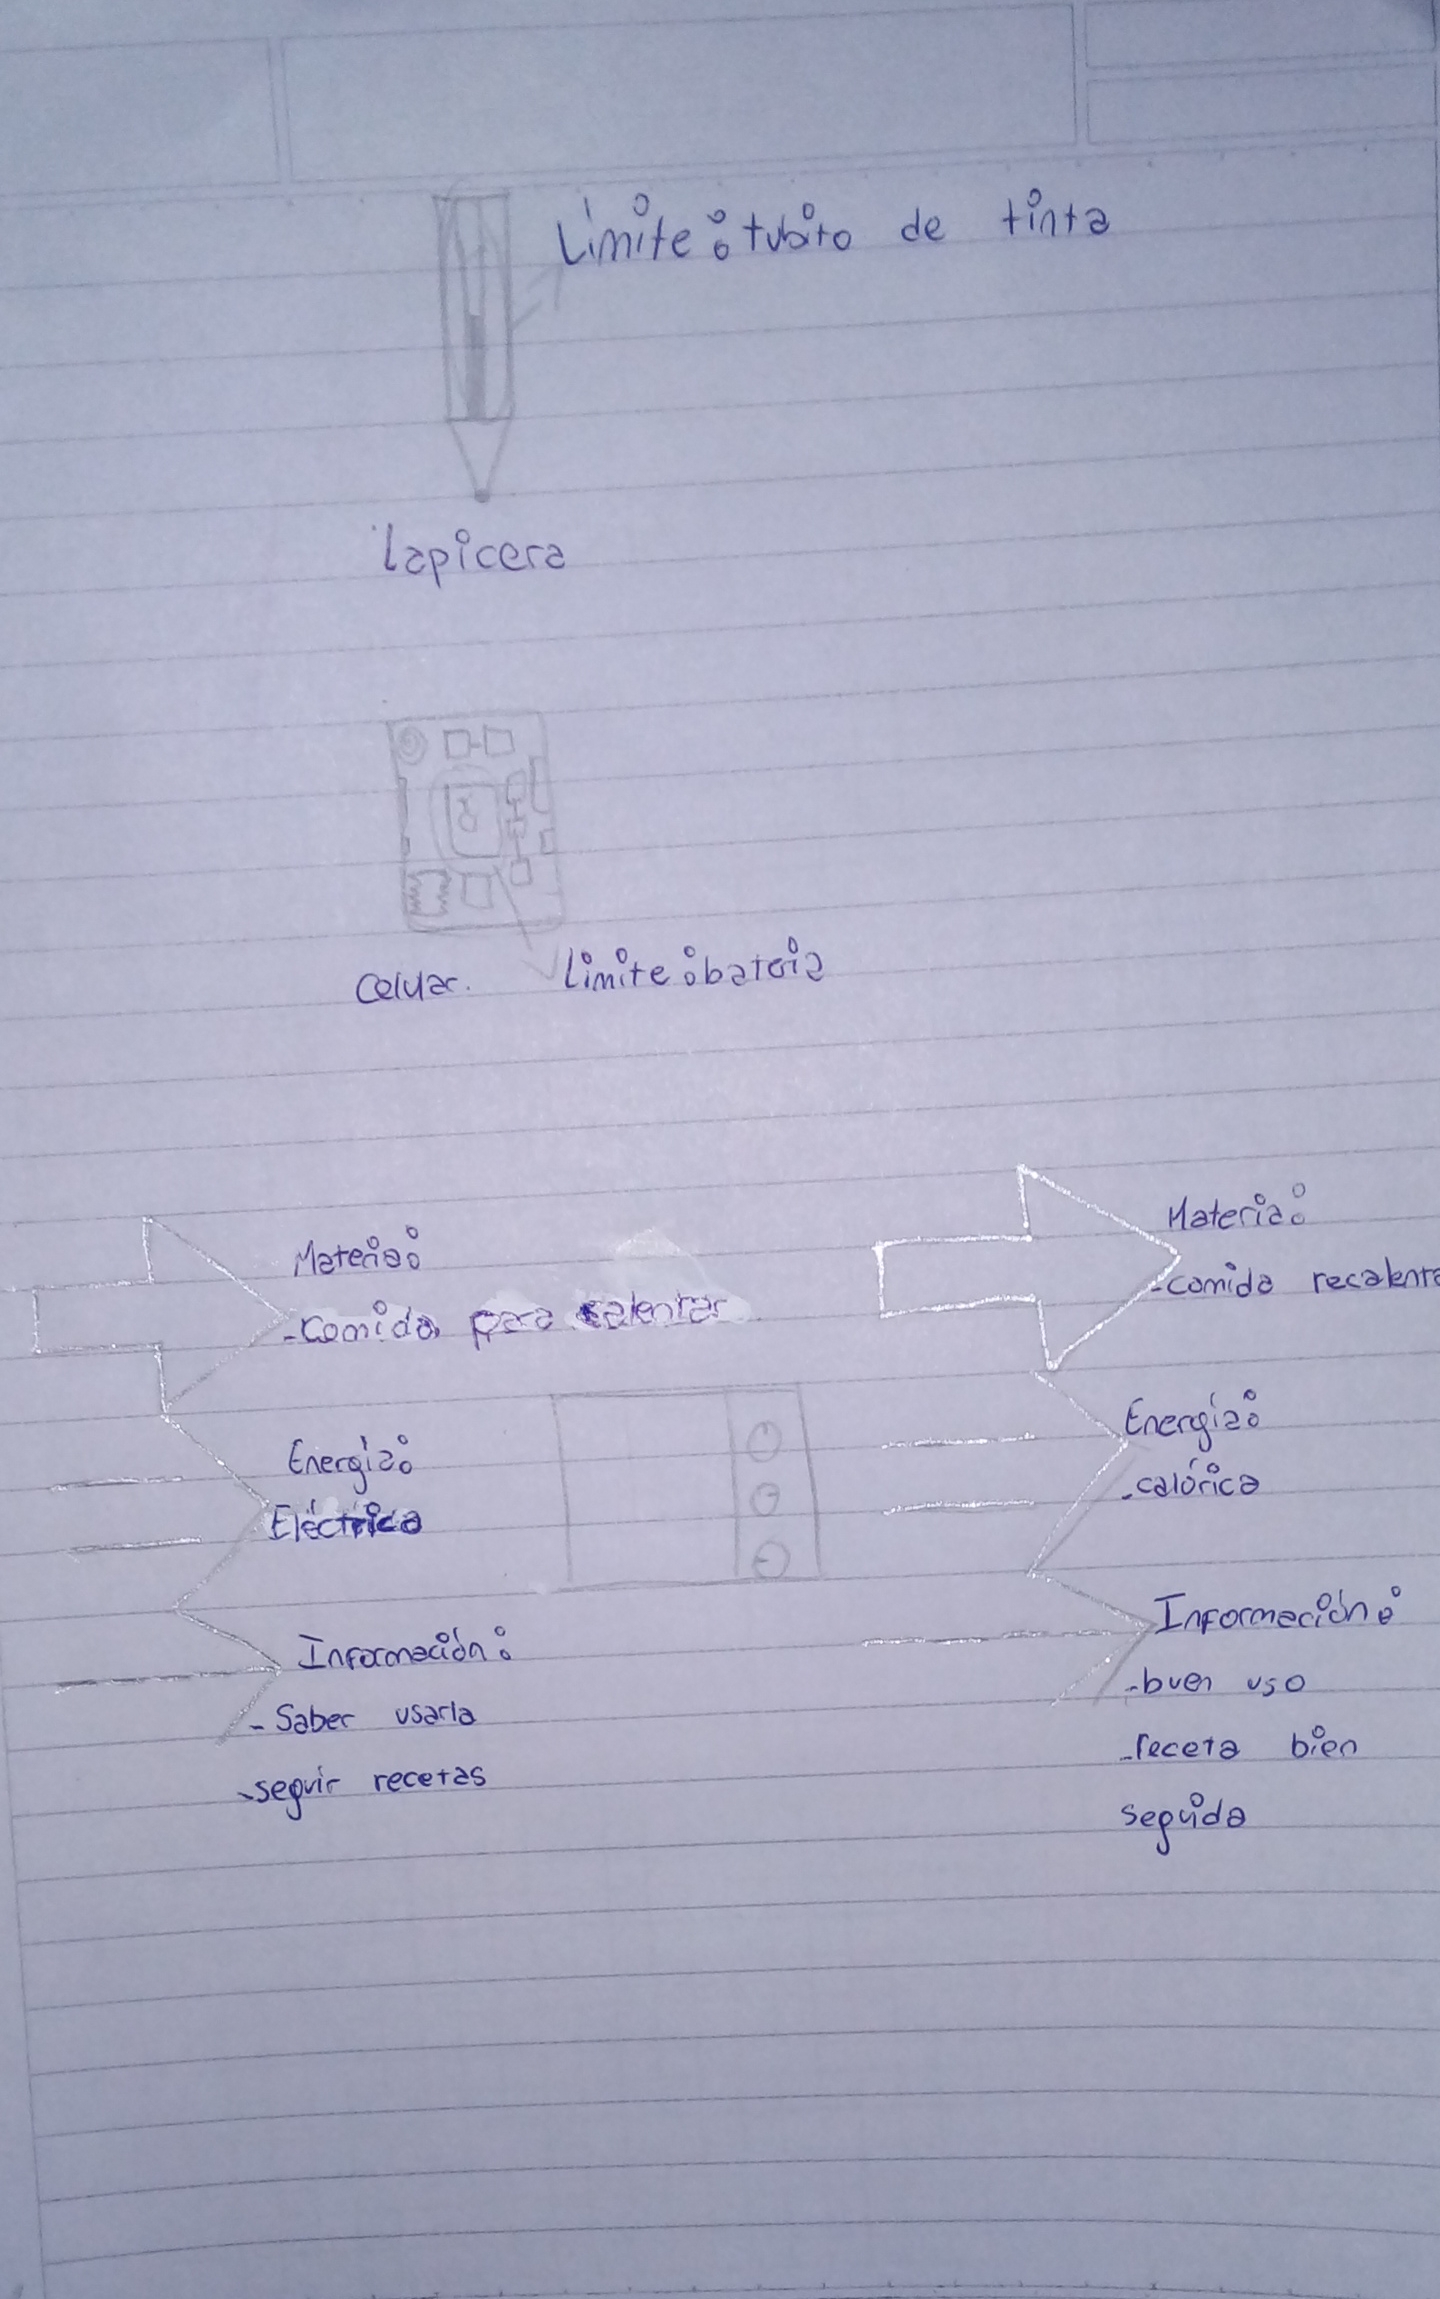 Límite: tubito de tinta
lapicera
celular.
límite: bateria
Materia:
-Comida para calentar
Energía:
Eléctrica
Información:
- Saber usarla
-seguir recetas
Materia:
-comida
Energía:
-calórica
Información:
-buen uso
-receta bien
seguida